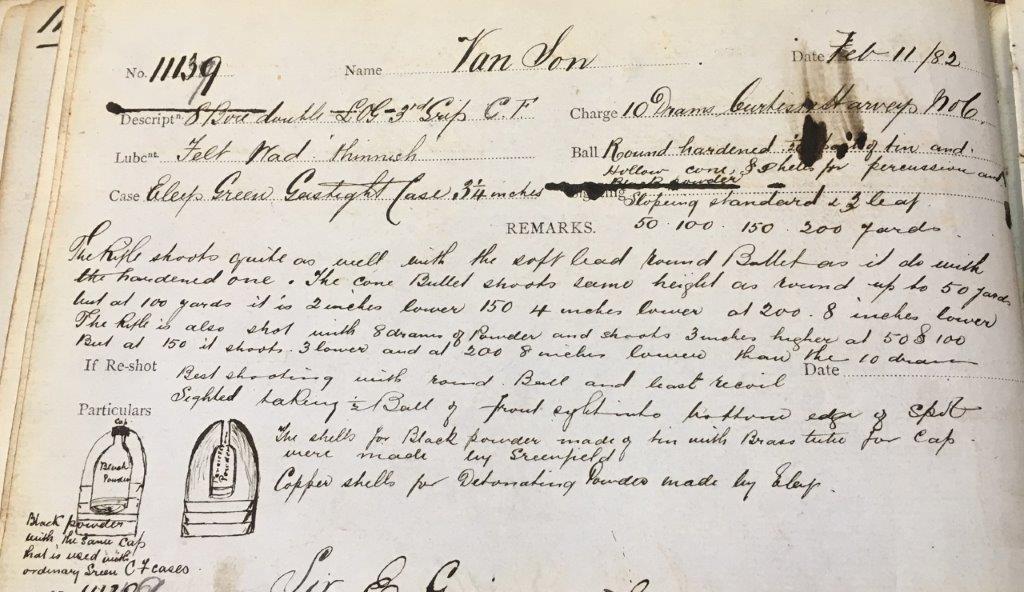 No. 11139 Name Van Son Date Feb 11/82
Descriptn. 8 Bore double 3rd Grip C.F. Charge 10 Drams Curtis & Harveys No 6
Lubcnt. Felt Wad Ball Round hardened tin and
Hollow cone, & shells for percussion and
Black powder
Case Eleys Green Gastight Case 3¼ inches
Slopeing standard & 3 leaf
REMARKS. 50 . 100 . 150 . 200 yards
The Rifle shoots quite as well with the soft lead round Bullet as it do with
the hardened one. The cone Bullet shoots same height as round up to 50 yards
but at 100 yards it is 2 inches lower 150 4 inches lower at 200 . 8 inches lower
The Rifle is also shot with 8 drams of Powder and shoots 3 inches higher at 50 & 100
But at 150 it shoots 3 lower and at 200 8 inches lower than the 10 drams
If Re-shot Best shooting with round Ball and least recoil Date
Sighted taking ½ Ball of front sight into bottom edge of spot
Particulars
The shells for Black powder made of tin with Brass tube for Cap
were made by Greenfield
Copper shells for Detonating Powder made by Eley.
Cap
Black
Powder
Powder
Black powder
with the same Cap
that is used with
ordinary Green C F cases
11139
Sir E. G